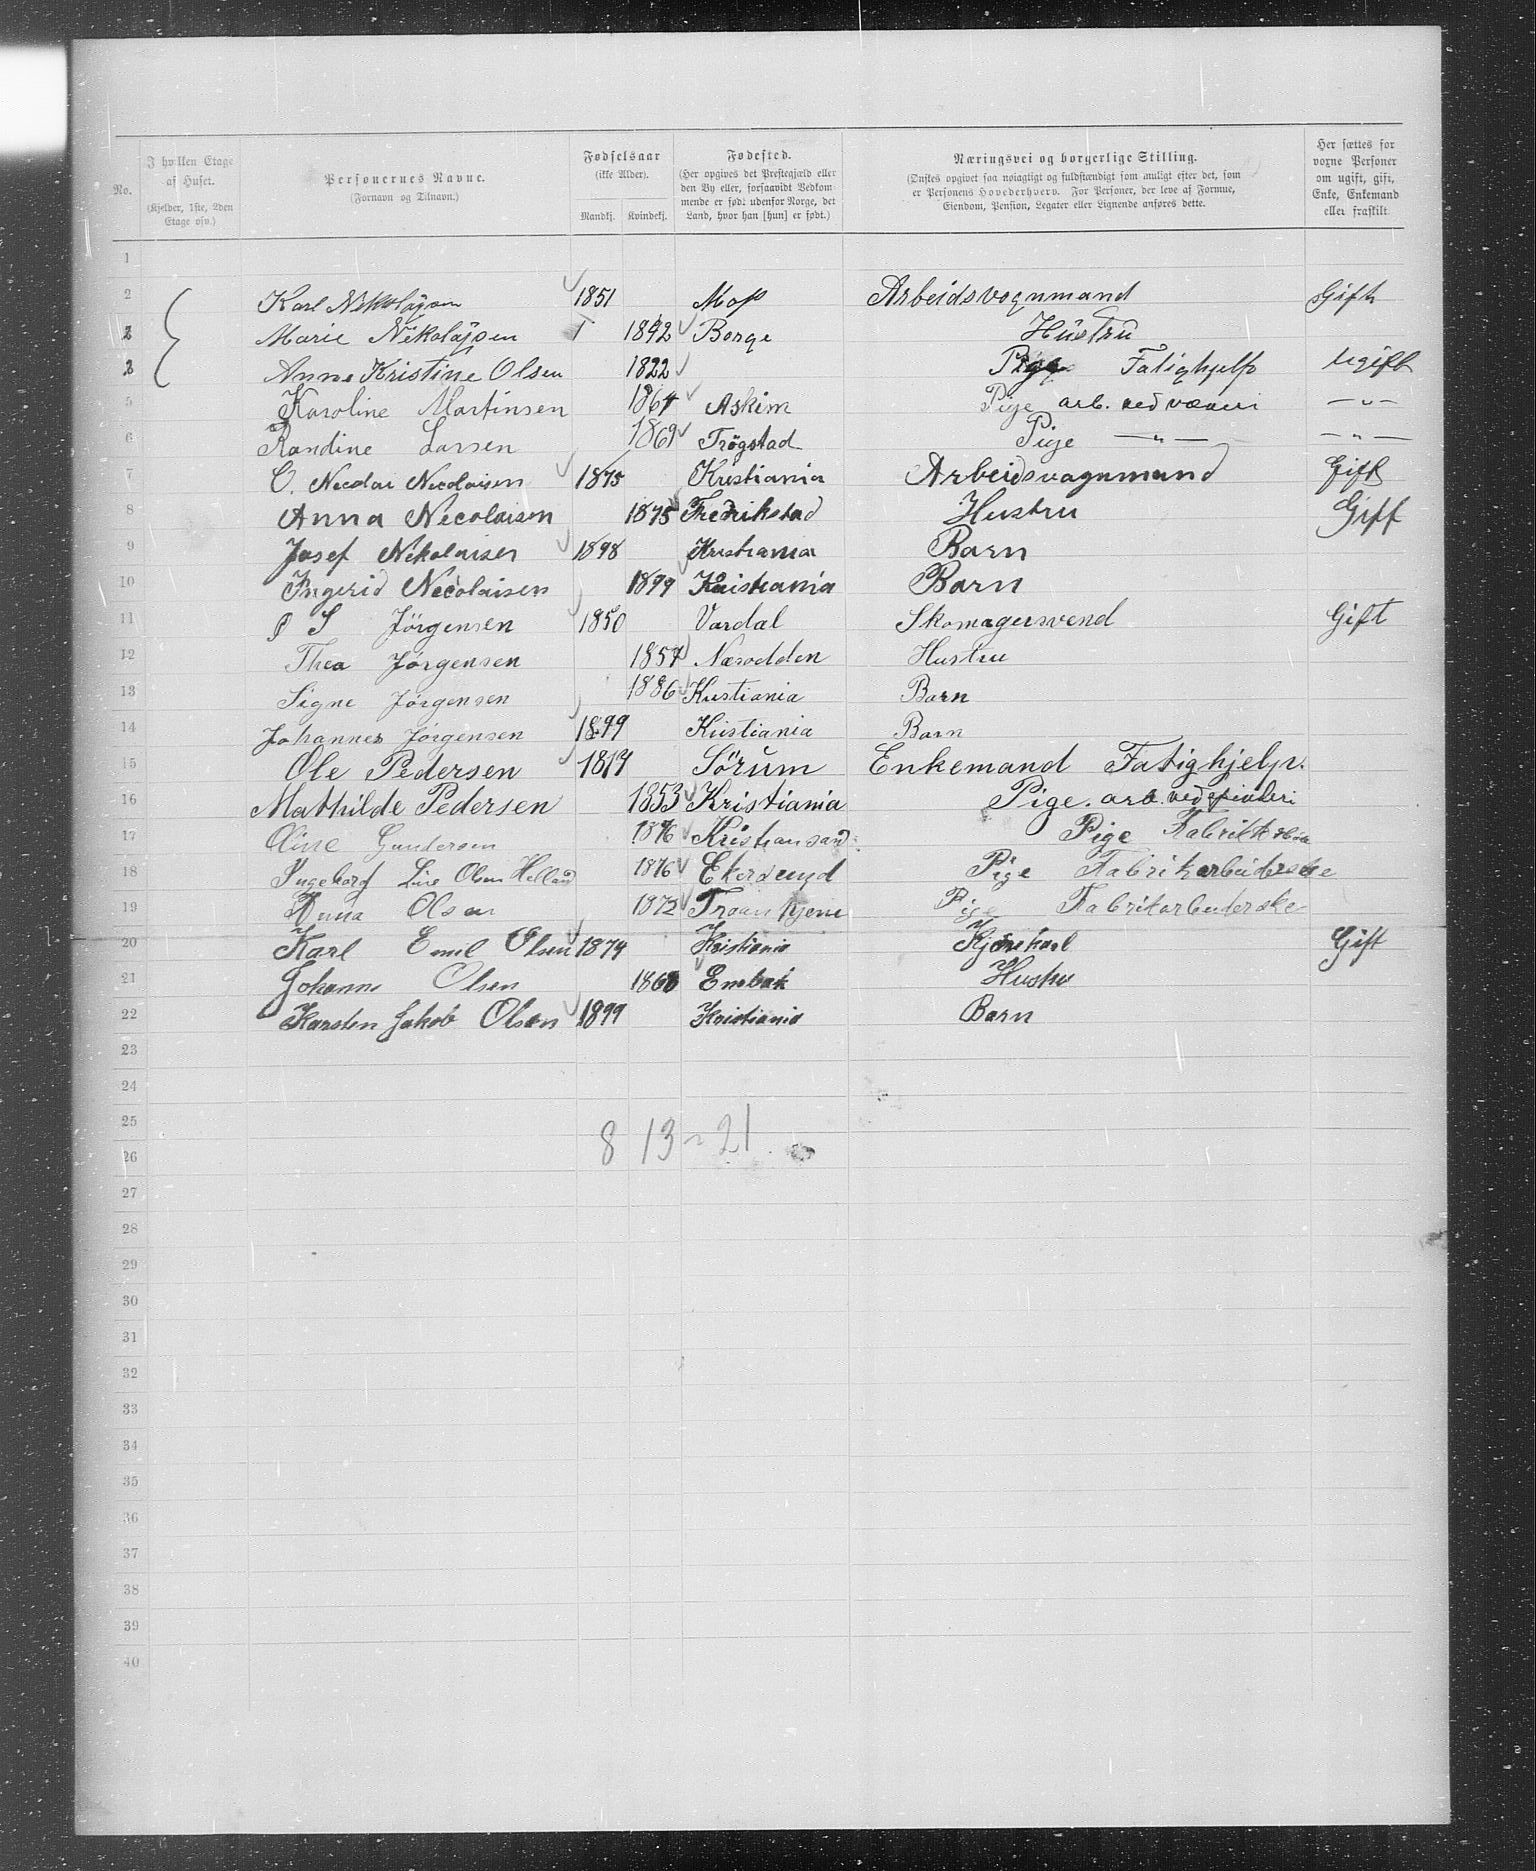 No. I hvilken Etage af Huset. (Kjelder, 1ste, 2den Etage osv.) Personernes Navne. (Fornavn og Tilnavn.) Fødselsaar (ikke Alder). Mandkj. Kvindekj. Fødested. (Her opgives det Prestegjæld eller den By eller, forsaavidt Vedkommende er født udenfor Norge, det Land, hvor han [hun] er født.) Næringsvei og borgerlige Stilling. (Ønskes opgivet saa nøiagtigt og fuldstændigt som muligt efter det, som er Personens Hovederhverv. For Personer, der leve af Formue, Eiendom, Pension, Legater eller Lignende anføres dette.) Her sættes for voxne Personer om ugift, gift, Enke, Enkemand eller fraskilt.
1
2 Karl Nikolajsen 1851 Moss Arbeidsvognmand Gift
Marie Nikolajsen 1842 Borge Hustru
Anne Kristine Olsen 1822 Pige Fatighjelp Ugift
5 Karoline Martinsen 1864 Askim Pige arb. ved væveri — „ —
6 Randine Larsen 1869 Trøgstad Pige — „ — — „ —
7 O. Necolai Necolaisen 1875 Kristiania Arbeidsvognmand Gift
8 Anna Necolaisen 1875 Fredrikstad Hustru Gift
9 Josef Nikolaisen 1898 Kristiania Barn
10 Ingerid Necolaisen 1899 Kristiania Barn
11 P S Jörgensen 1850 Vardal Skomagersvend Gift
12 Thea Jørgensen 1857 Næsodden Hustru
13 Signe Jørgensen 1886 Kristiania Barn
14 Johannes Jørgensen 1899 Kristiania Barn
15 Ole Pedersen 1819 Sörum Enkemand Fatighjelp.
16 Mathilde Pedersen 1853 Kristiania Pige. arb. ved spinderi
17 Gundersen 1876 Kristiansand Pige
18 Ingeborg Line Olsen Helland 1876 Ekersund Pige Fabrikarbeiderske
19 Anna Olsen 1872 Pige Fabrikarbeiderske
20 Karl Emil Olsen 1874 Kristiania Kjørekarl Gift
21 Johanne Olsen 1860 Enebak Hustru
22 Karsten Jakob Olsen 1899 Kristiania Barn
23
24
25
8 13 = 21
26
27
28
29
30
31
32
33
34
35
36
37
38
39
40